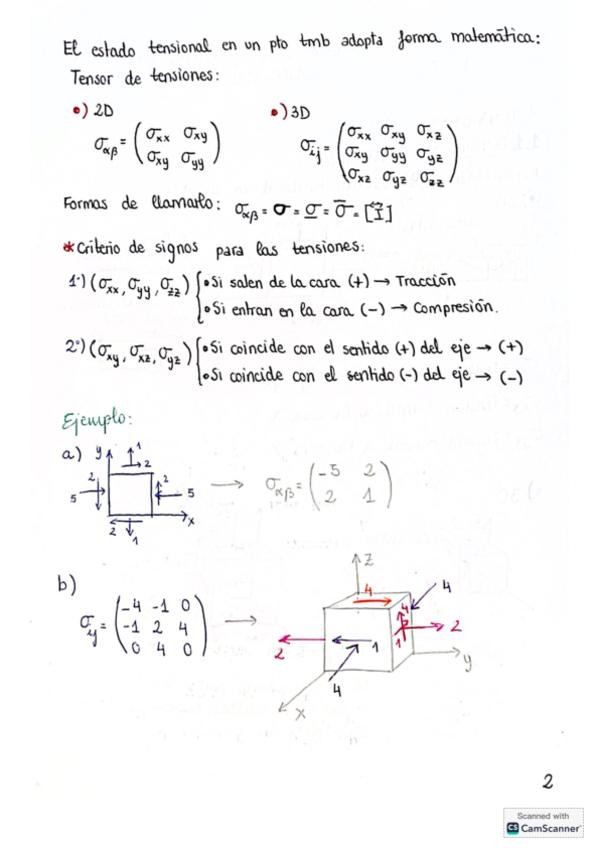 El estado tensional en un pto tmb adopta forma matemática:
Tensor de tensiones:
•) 2D •) 3D
σαβ = (σxx σxy
σxy σyy)
σij = (σxx σxy σxz
σxy σyy σyz
σxz σyz σzz)
Formas de llamarlo: σαβ = σ = σ = σ =
*Criterio de signos para las tensiones:
1º) (σxx, σyy, σzz) { • Si salen de la cara (+) → Tracción
• Si entran en la cara (-) → Compresión.
2º) (σxy, σxz, σyz) { • Si coincide con el sentido (+) del eje → (+)
• Si coincide con el sentido (-) del eje → (-)
Ejemplo:
a) y 1 2 2 5 2 5 x 2 1
→ σαβ = (-5 2
2 1)
b) σij = (-4 -1 0
-1 2 4
0 4 0) →
z 4 4 4 2 2 1 1 4 y x
2
Scanned with
CS CamScanner